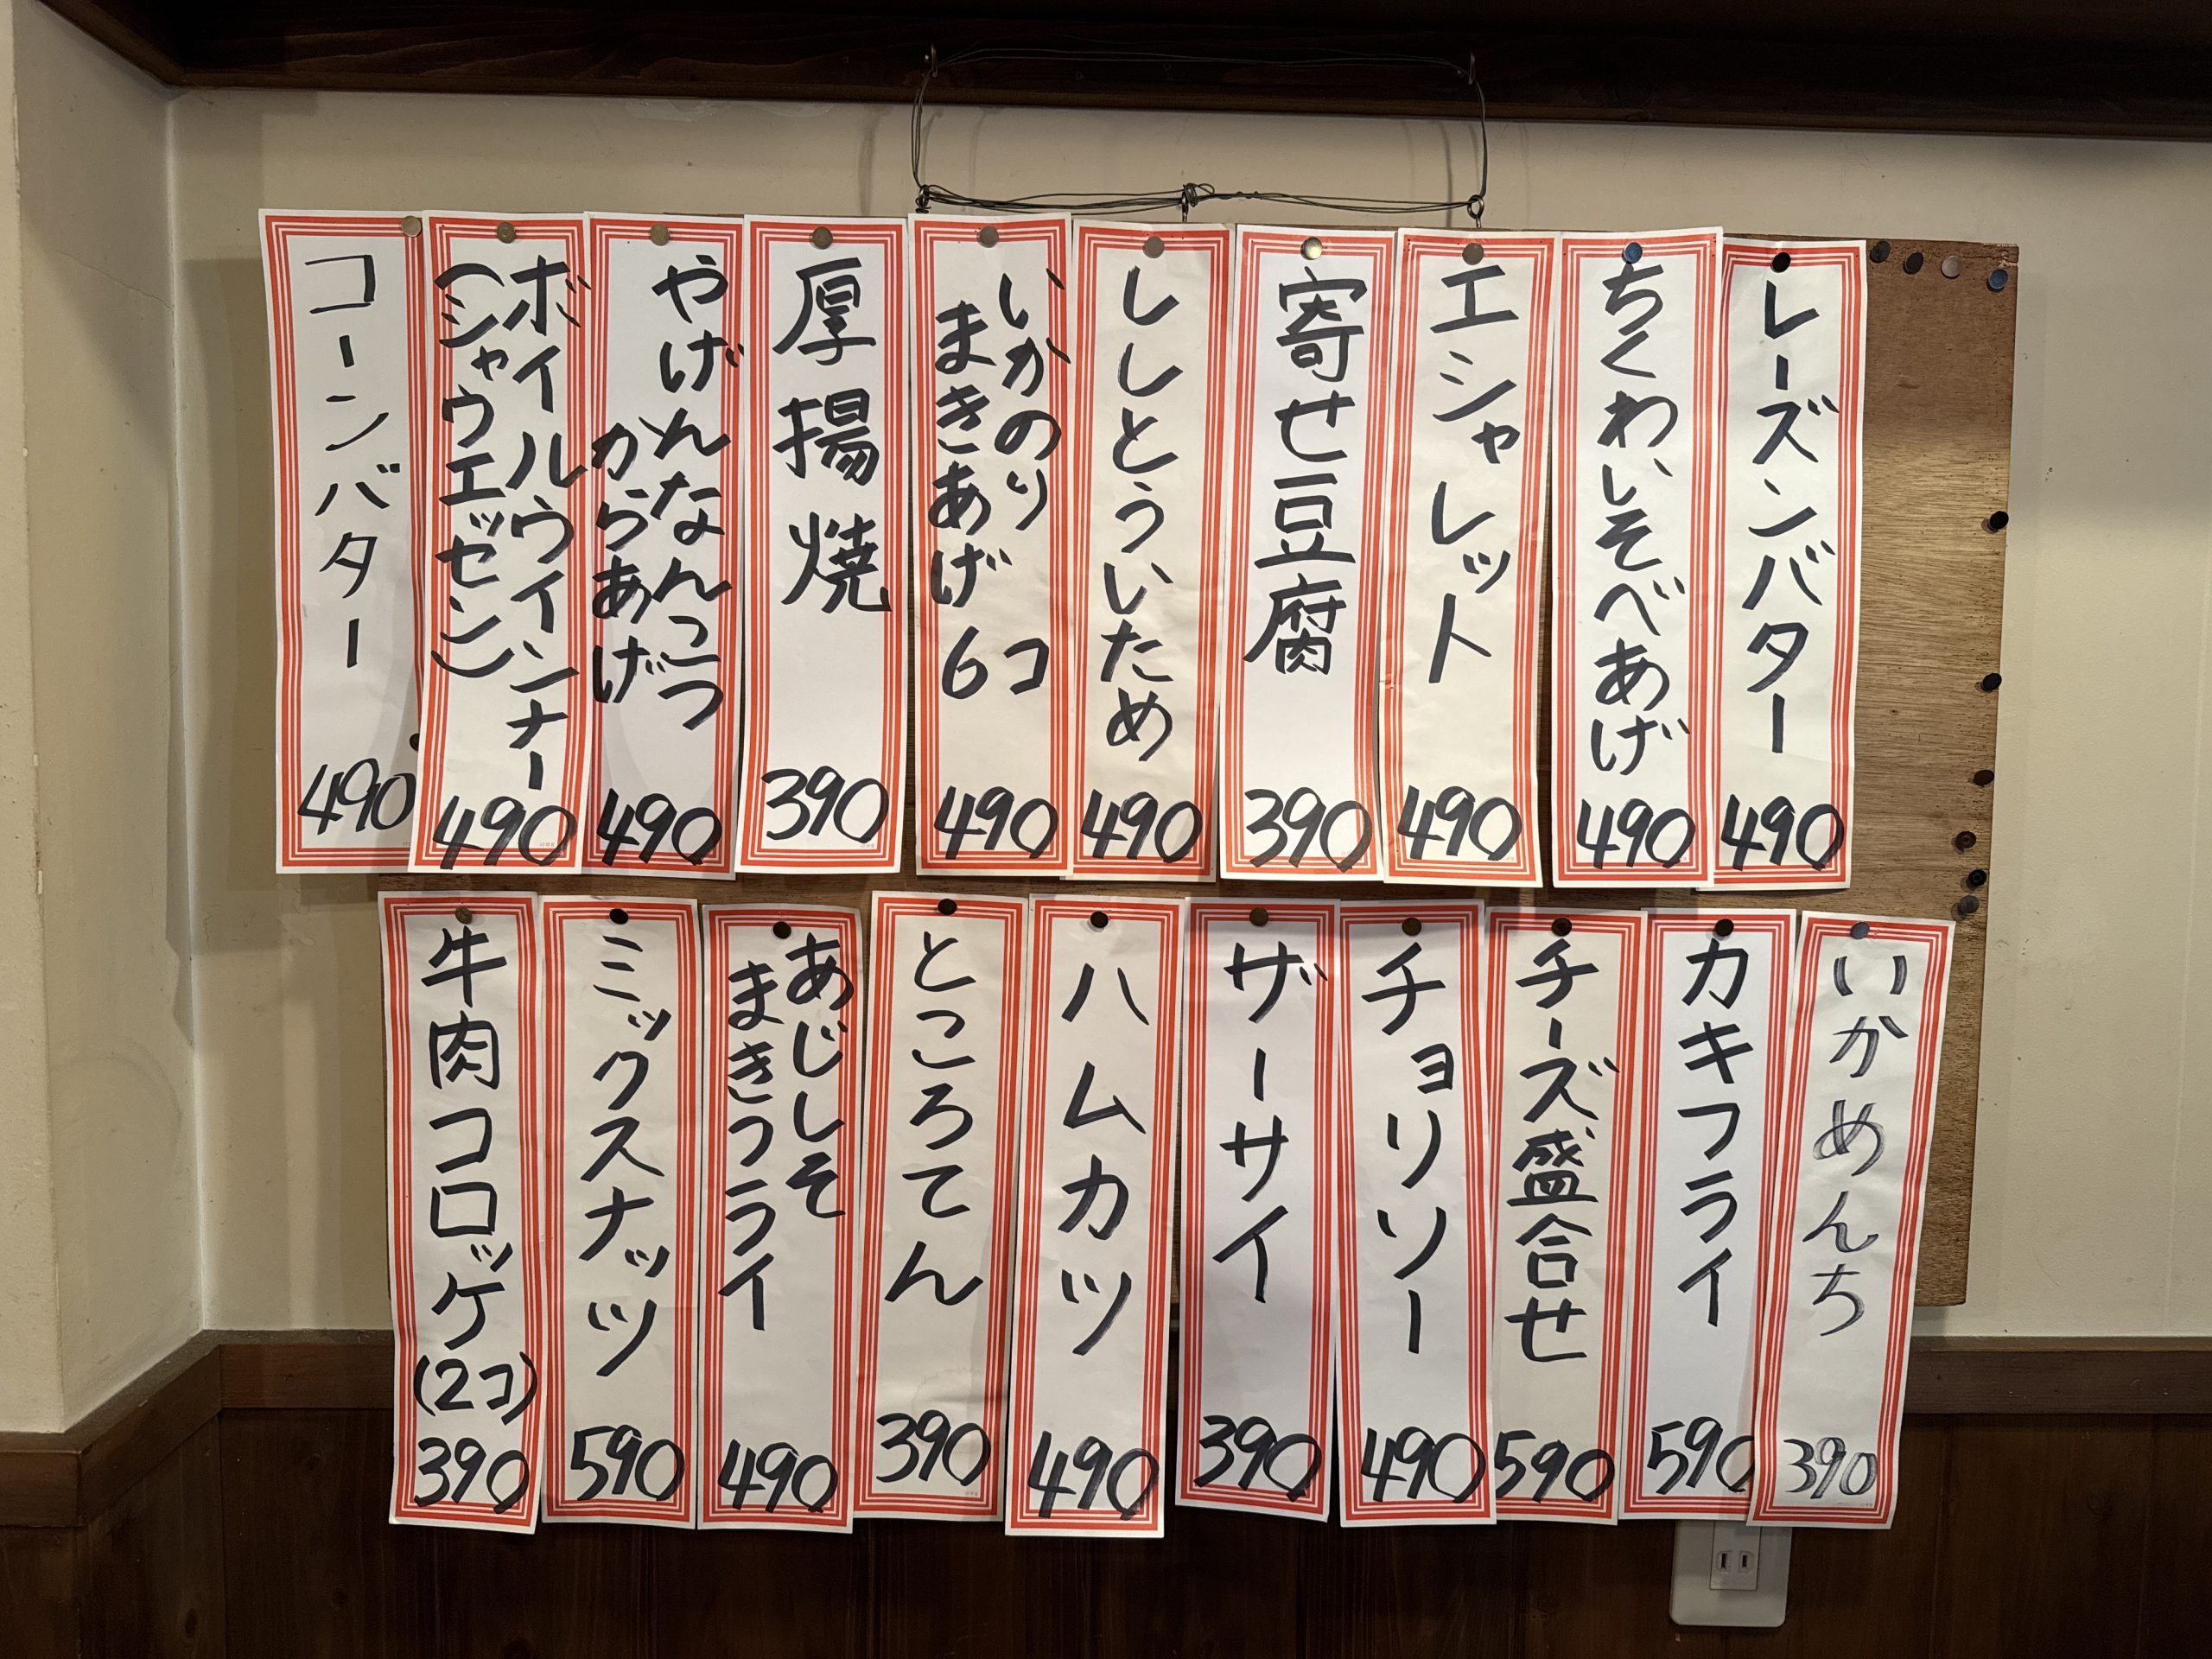 レーズンバター
490
ちくわ、しそべあげ
490
エシャレット
490
寄せ豆腐
390
ししとういため
490
いかのり
まきあげ
6コ
490
厚揚焼
390
やげんなんこつ
からあげ
490
ボイルウインナー
(シャウエッセン)
490
コーンバター
490
いかめんち
390
カキフライ
590
チーズ盛合せ
590
チョリソー
490
ザーサイ
390
ハムカツ
490
ところてん
390
あじしそ
まきフライ
490
ミックスナッツ
590
牛肉コロッケ
(2コ)
390